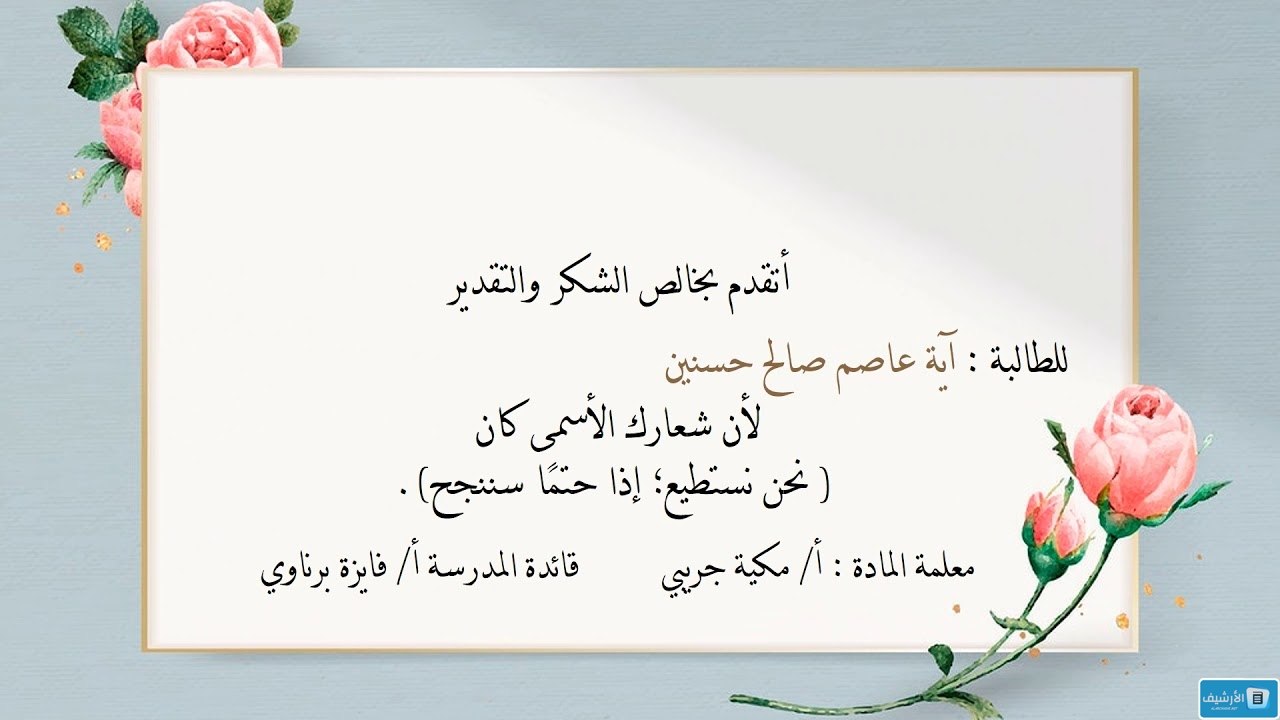 أتقدم بخالص الشكر والتقدير
للطالبة : آية عاصم صالح حسنين
لأن شعارك الأسمى كان
( نحن نستطيع؛ إذا حتمًا سننجح) .
معلمة المادة : أ/ مكية جريبي قائدة المدرسة أ/ فايزة برناوي
الأرشيف